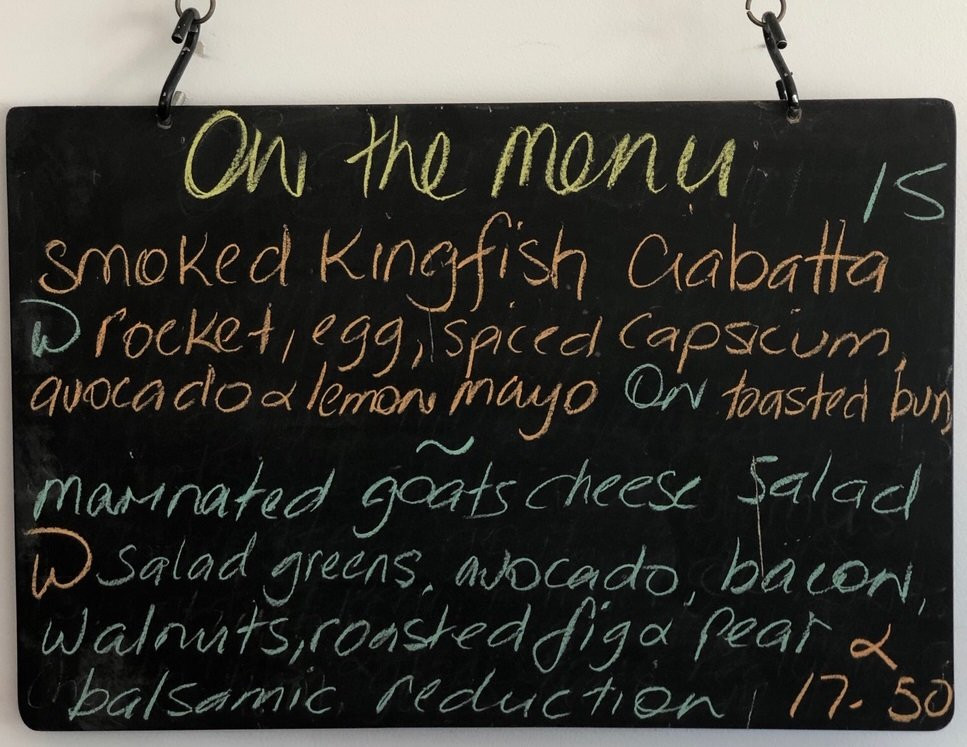 On the menu
15
smoked Kingfish Ciabatta
W rocket, egg, spiced capsicum,
avocado & lemon mayo On toasted bun
~
marinated goats cheese Salad
W Salad greens, avocado, bacon,
Walnuts, roasted fig & Pear &
balsamic reduction 17.50